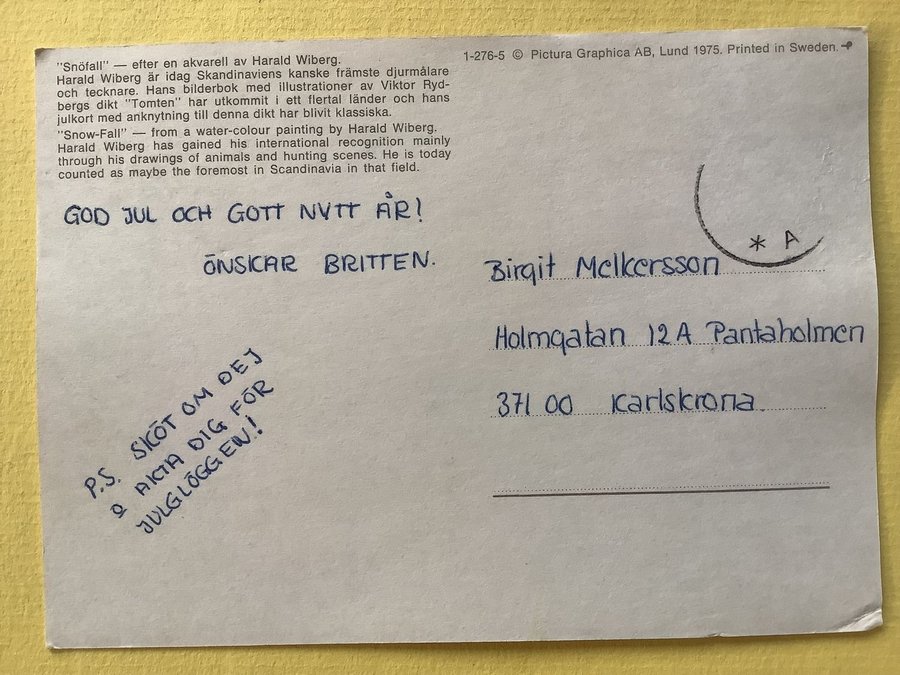 "Snöfall" — efter en akvarell av Harald Wiberg.
Harald Wiberg är idag Skandinaviens kanske främste djurmålare
och tecknare. Hans bilderbok med illustrationer av Viktor Ryd-
bergs dikt "Tomten" har utkommit i ett flertal länder och hans
julkort med anknytning till denna dikt har blivit klassiska.
"Snow-Fall" — from a water-colour painting by Harald Wiberg.
Harald Wiberg has gained his international recognition mainly
through his drawings of animals and hunting scenes. He is today
counted as maybe the foremost in Scandinavia in that field.
1-276-5 © Pictura Graphica AB, Lund 1975. Printed in Sweden.
GOD JUL OCH GOTT NYTT ÅR!
ÖNSKAR BRITTEN.
P.S. SKÖT OM DEJ
O AKTA DIG FÖR
JULGLÖGGEN!
* A
Birgit Melkersson
Holmgatan 12A Pantaholmen
371 00 Karlskrona